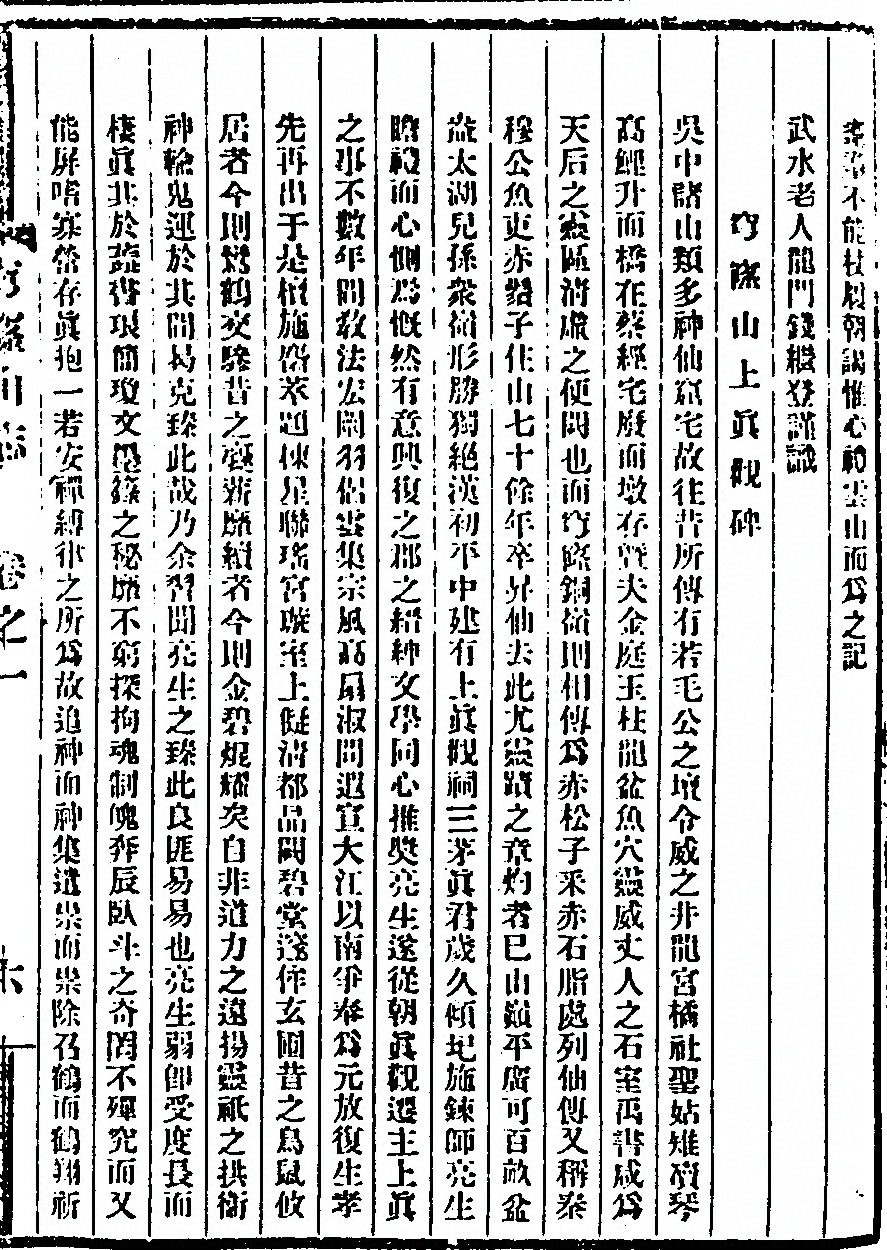 不能杖屨朝謁惟心禮雲山而爲之記
武水老人龍門錢繼登謹識
穹窿山上眞觀碑
吳中諸山類多神仙窟宅故往昔所傳有若毛公之壇令威之井龍宮橘社聖姑雉瀆琴
高鯉升而橋在蔡經宅廢而墩存曁夫金庭玉柱龍盆魚穴靈威丈人之石室禹書咸爲
天后之靈區淸虛之便闕也而穹窿銅嶺則相傳爲赤松子采赤石脂處列仙傳又稱秦
穆公魚吏赤鬚子住山七十餘年卒昇仙去此尤靈蹟之章灼者已山巔平廣可百畝盆
盎太湖兒孫衆嶺形勝獨絕漢初平中建有上眞觀祠三茅眞君歲久傾圮施鍊師亮生
瞻禮而心惻焉慨然有意興復之郡之縉紳文學同心推奬亮生遂從朝眞觀遷主上眞
之事不數年間敎法宏闡羽侶雲集宗風高扇淑問遐宣大江以南爭奉爲元放復生孝
先再出于是檀施沓萃題楝星聯瑤宮璇室上儗淸都品闕碧堂淺侔玄圃昔之鳥鼠攸
居者今則鸞鶴交驂昔之薶薪靡續者今則金碧焜燿矣自非道力之遠揚靈祇之拱衞
神輪鬼運於其間曷克臻此哉乃余習聞亮生之臻此良匪易易也亮生弱卽受度長而
棲眞其於蕊書琅簡瓊文墨籙之秘靡不窮探拘魂制魄奔辰臥斗之奇罔不殫究而又
能屏嗜寡營存眞抱一若安禪縛律之所爲故追神而神集遣祟而祟除召鶴而鶴翔祈
穹窿山志 卷之一 六